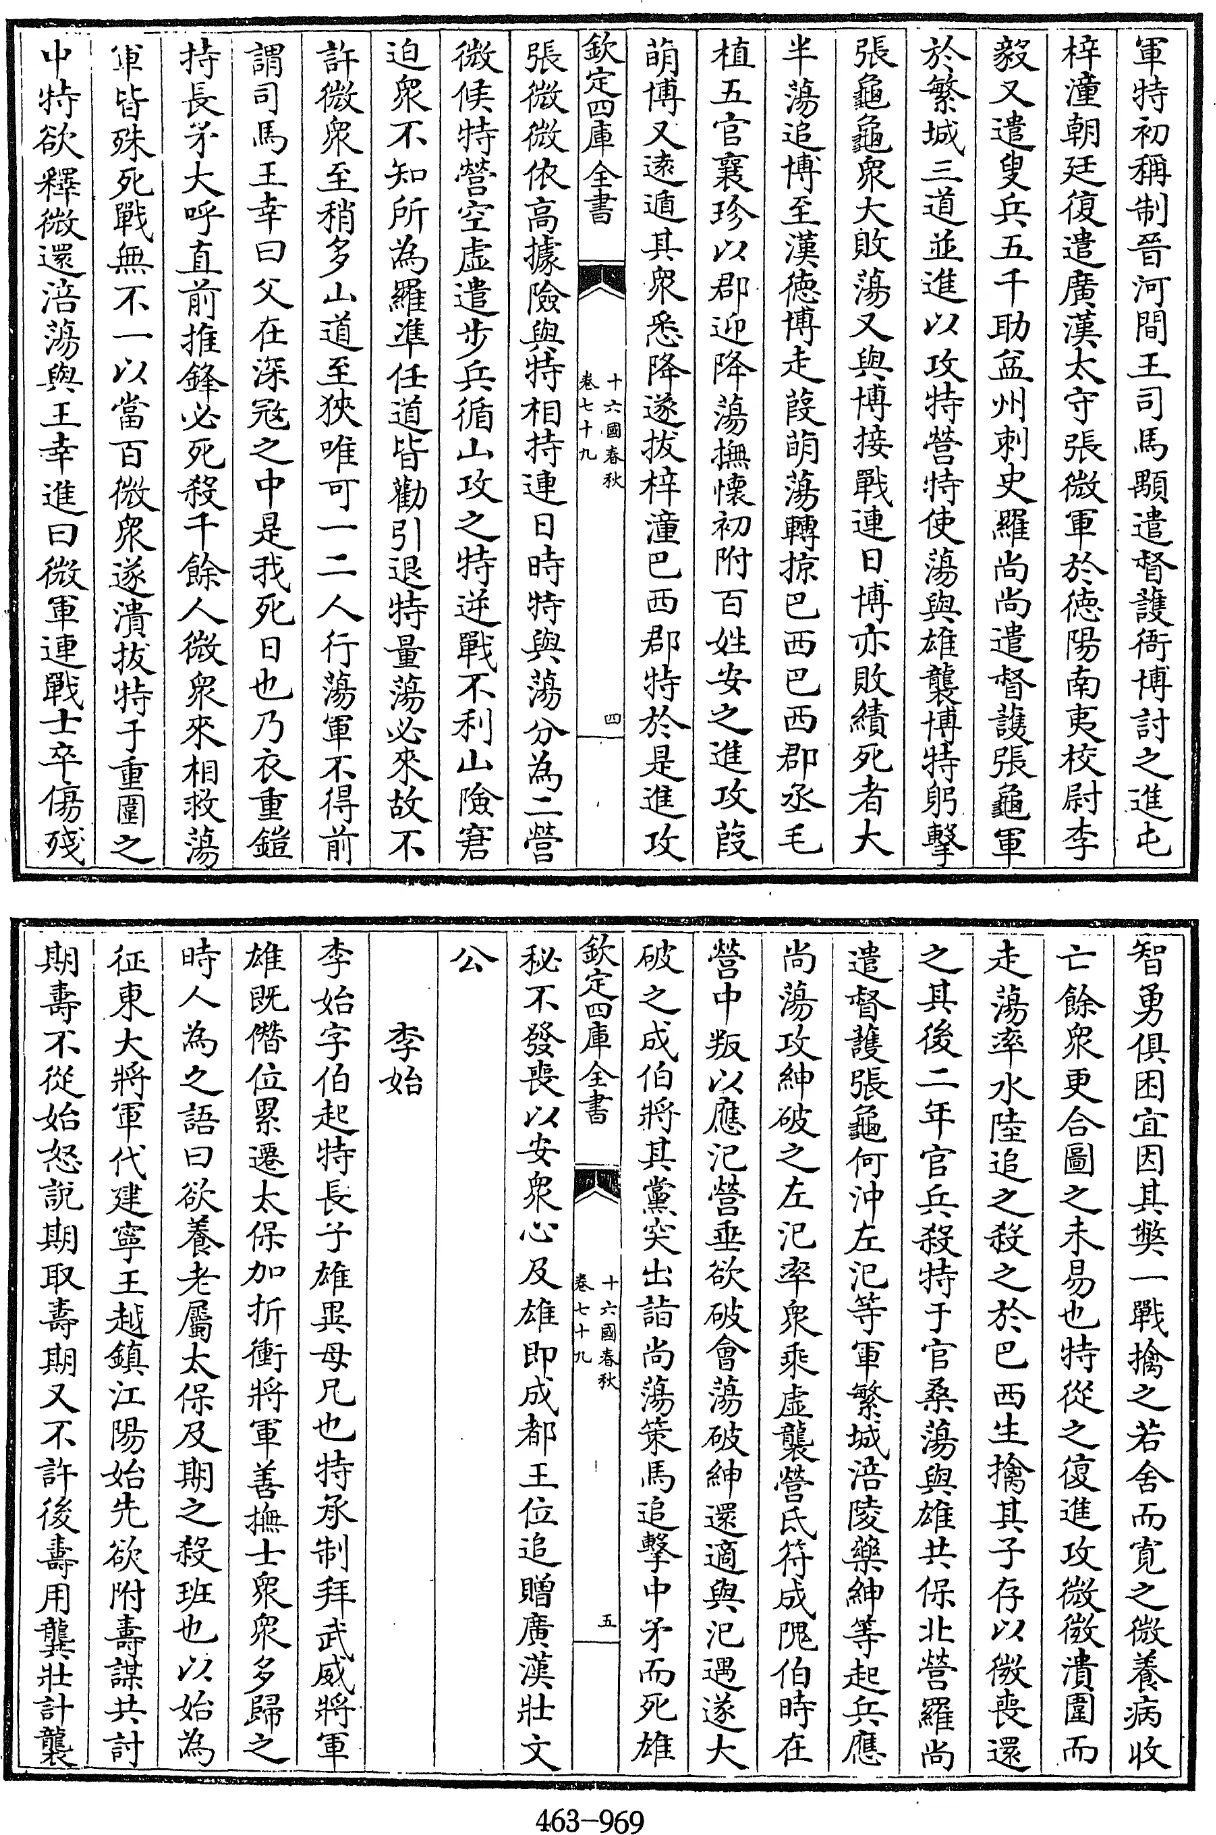 軍特初稱制晉河間王司馬顒遣督護衙博討之進屯
梓潼朝廷復遣廣漢太守張微軍於德陽南夷校尉李
毅又遣叟兵五千助益州刺史羅尚尚遣督護張龜軍
於繁城三道並進以攻特營特使蕩與雄襲博特躬擊
張龜龜衆大敗蕩又與博接戰連日博亦敗績死者大
半蕩追博至漢德博走葭萌蕩轉掠巴西巴西郡丞毛
植五官襄珍以郡迎降蕩撫懷初附百姓安之進攻葭
萌博又遠遁其衆悉降遂拔梓潼巴西郡特於是進攻
欽定四庫全書
十六國春秋
卷七十九
四
張微微依高據險與特相持連日時特與蕩分為二營
微候特營空虛遣步兵循山攻之特逆戰不利山險窘
迫衆不知所為羅準任道皆勸引退特量蕩必來故不
許微衆至稍多山道至狹唯可一二人行蕩軍不得前
謂司馬王幸曰父在深冦之中是我死日也乃衣重鎧
持長矛大呼直前推鋒必死殺千餘人微衆來相救蕩
軍皆殊死戰無不一以當百微衆遂潰拔特于重圍之
中特欲釋微還涪蕩與王幸進曰微軍連戰士卒傷殘
智勇俱困宜因其獘一戰擒之若舍而寛之微養病收
亡餘衆更合圖之未易也特從之復進攻微微潰圍而
走蕩率水陸追之殺之於巴西生擒其子存以微喪還
之其後二年官兵殺特于官桑蕩與雄共保北營羅尚
遣督護張龜何沖左氾等軍繁城涪陵藥紳等起兵應
尚蕩攻紳破之左氾率衆乘虛襲營氐符成隗伯時在
營中叛以應氾營垂欲破會蕩破紳還適與氾遇遂大
破之成伯將其黨突出詣尚蕩策馬追擊中矛而死雄
欽定四庫全書
十六國春秋
卷七十九
五
秘不發喪以安衆心及雄即成都王位追贈廣漢壯文
公
李始
李始字伯起特長子雄異母兄也特承制拜武威將軍
雄既僭位累遷太保加折衝將軍善撫士衆衆多歸之
時人為之語曰欲養老屬太保及期之殺班也以始為
征東大將軍代建寧王越鎮江陽始先欲附壽謀共討
期壽不從始怒説期取壽期又不許後壽用龔壯計襲
463-969